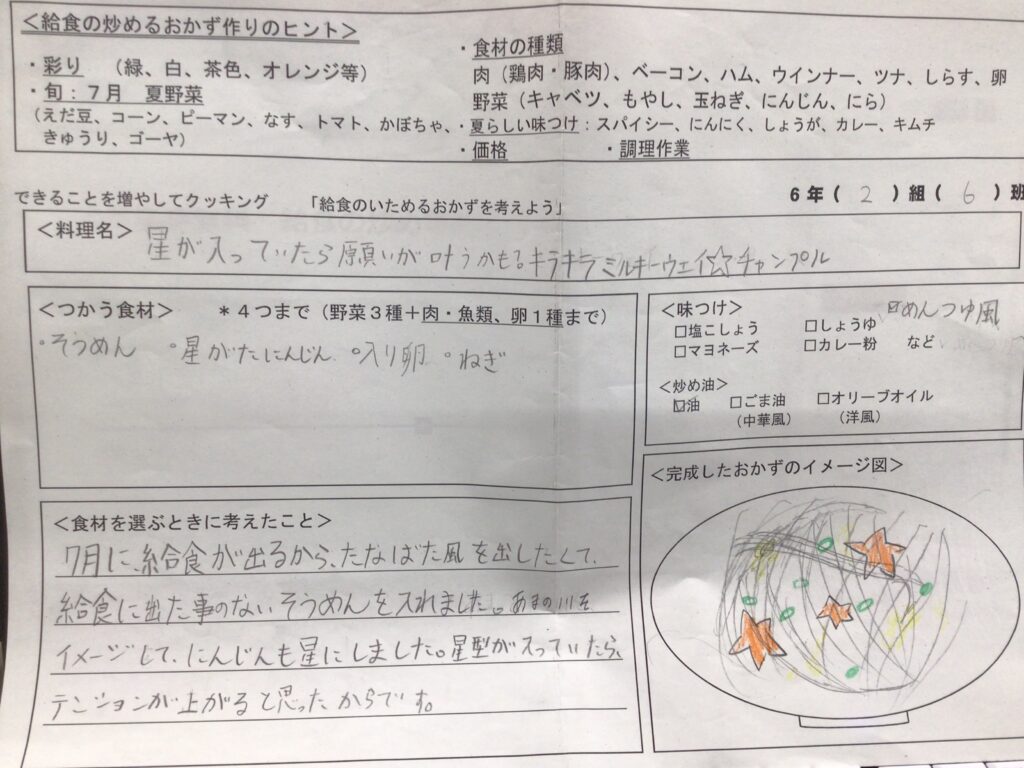 ＜給食の炒めるおかず作りのヒント＞
・彩り　（緑、白、茶色、オレンジ等）
・旬：７月　夏野菜
（えだ豆、コーン、ピーマン、なす、トマト、かぼちゃ、
きゅうり、ゴーヤ）
・食材の種類
肉（鶏肉・豚肉）、ベーコン、ハム、ウインナー、ツナ、しらす、卵
野菜（キャベツ、もやし、玉ねぎ、にんじん、にら）
・夏らしい味つけ：スパイシー、にんにく、しょうが、カレー、キムチ
・価格　　　・調理作業
できることを増やしてクッキング　「給食のいためるおかずを考えよう」
６年（ 2 ）組（ 6 ）班
＜料理名＞ 星が入っていたら願いが叶うかも？キラキラミルキーウェイ☆チャンプル
＜つかう食材＞　＊４つまで（野菜３種＋肉・魚類、卵１種まで）
・そうめん　・星がたにんじん　・入り卵　・ねぎ
＜味つけ＞　☑めんつゆ風
□塩こしょう　□しょうゆ
□マヨネーズ　□カレー粉　など
＜炒め油＞
☑油　□ごま油　□オリーブオイル
（中華風）　（洋風）
＜食材を選ぶときに考えたこと＞
7月に、給食が出るから、たなばた風を出したくて、
給食に出た事のないそうめんを入れました。あまの川を
イメージして、にんじんも星にしました。星型が入っていたら、
テンションが上がると思ったからです。
＜完成したおかずのイメージ図＞